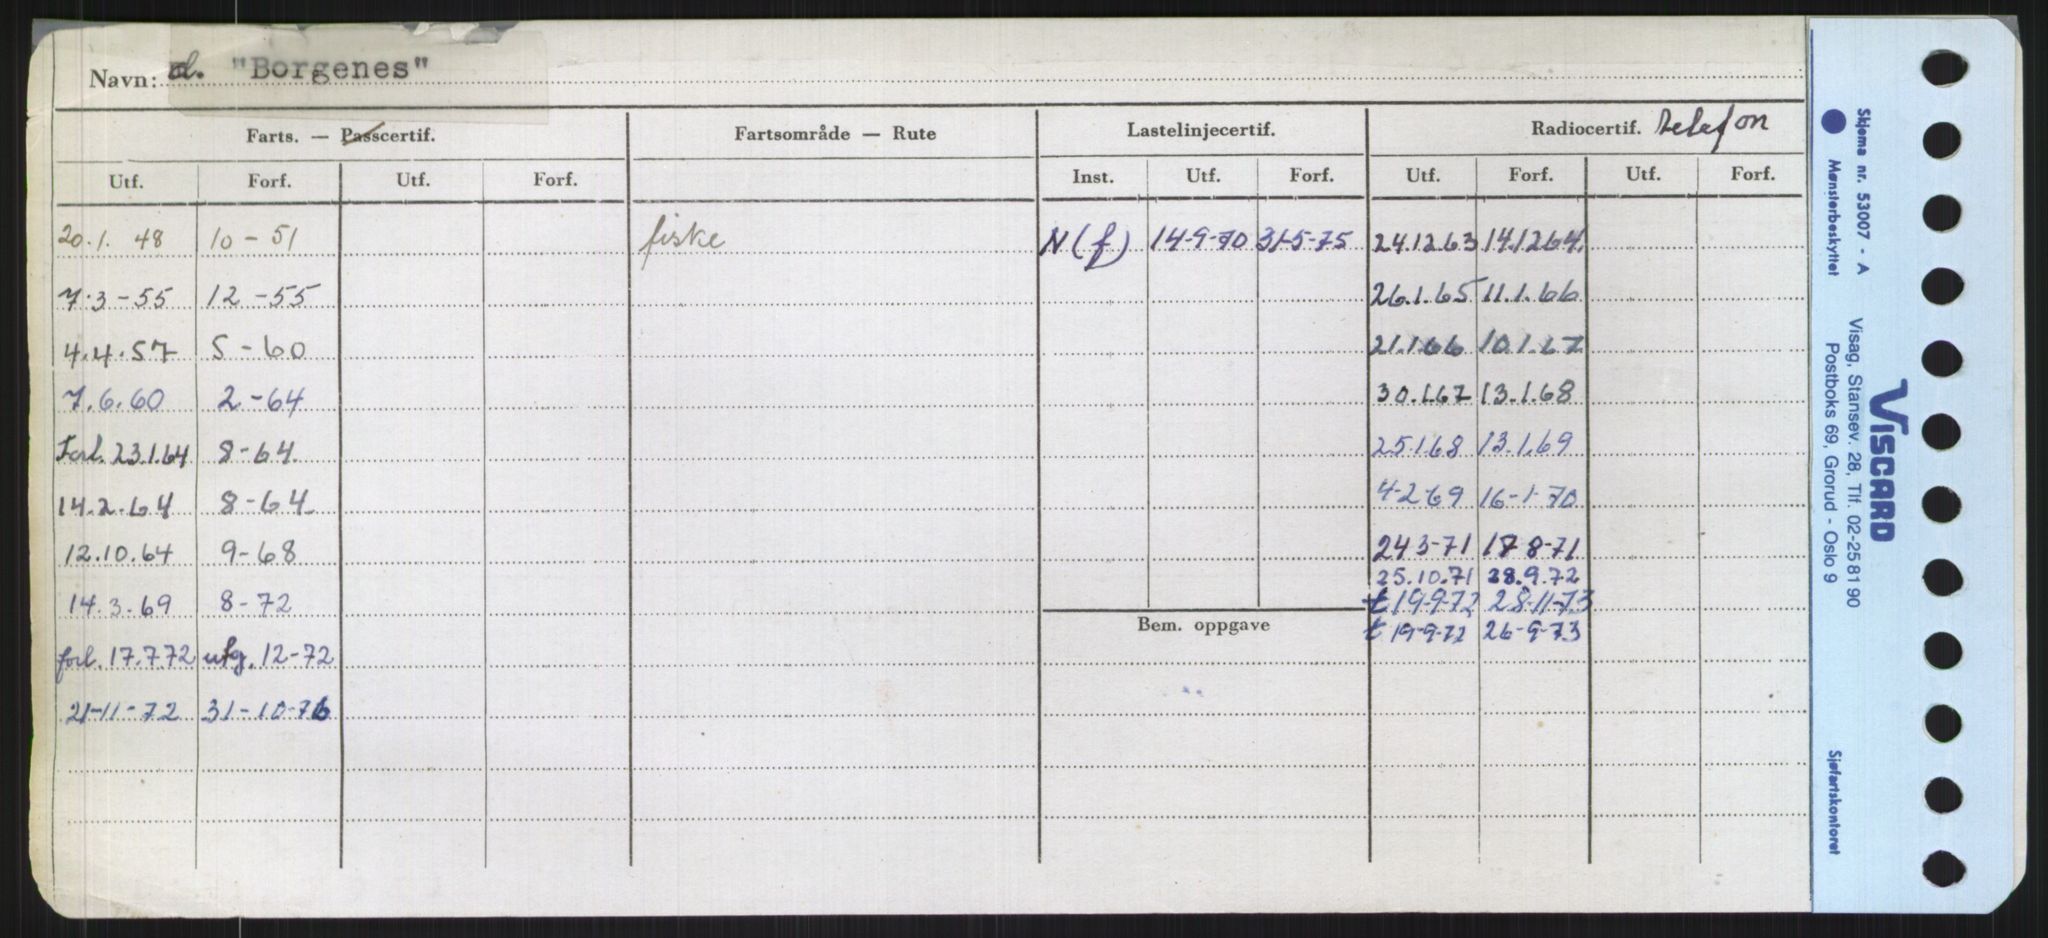 Navn: d. "Borgenes"
Farts. — Passcertif. Fartsområde — Rute Lastelinjecertif. Radiocertif. Telefon
Utf. Forf. Utf. Forf. Inst. Utf. Forf. Utf. Forf. Utf. Forf.
20.1. 48 10-51 fiske N (f) 14-9-70 31-5-75 24.12.63 14.12.64.
7.3-55 12-55 26.1.65 11.1.66
4.4.57 5-60 21.1.66 10.1.67
7.6.60 2-64 30.1.67 13.1.68
Forl. 23.1.64 8-64 25.1.68 13.1.69
14.2.64 8-64 4-2-69 16-1-70
12.10.64 9-68 24 3-71 17 8-71
25.10.71 28.9.72
14.3.69 8-72 t 19-9-72 28-11-73
Bem. oppgave t 19-9-72 26-9-73
forl. 17.7.72 utg. 12-72
21-11-72 31-10-76
Skjema nr. 53007 - A
Mønsterbeskyttet
VISCARD
Visag, Stansev. 28, Tlf. 02-25 81 90
Postboks 69, Grorud - Oslo 9
Sjøfartskontoret